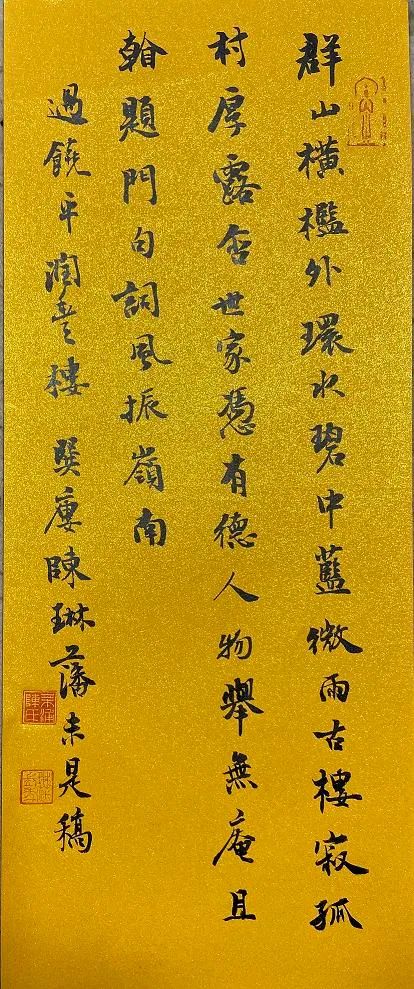 群山横檻外環水碧中藍微雨古樓寂孤
村厚露含世家憑有德人物舉無庵且
翰題門句詞風振嶺南
過饒平潤豐樓 巽廔陳琳藩未是稿